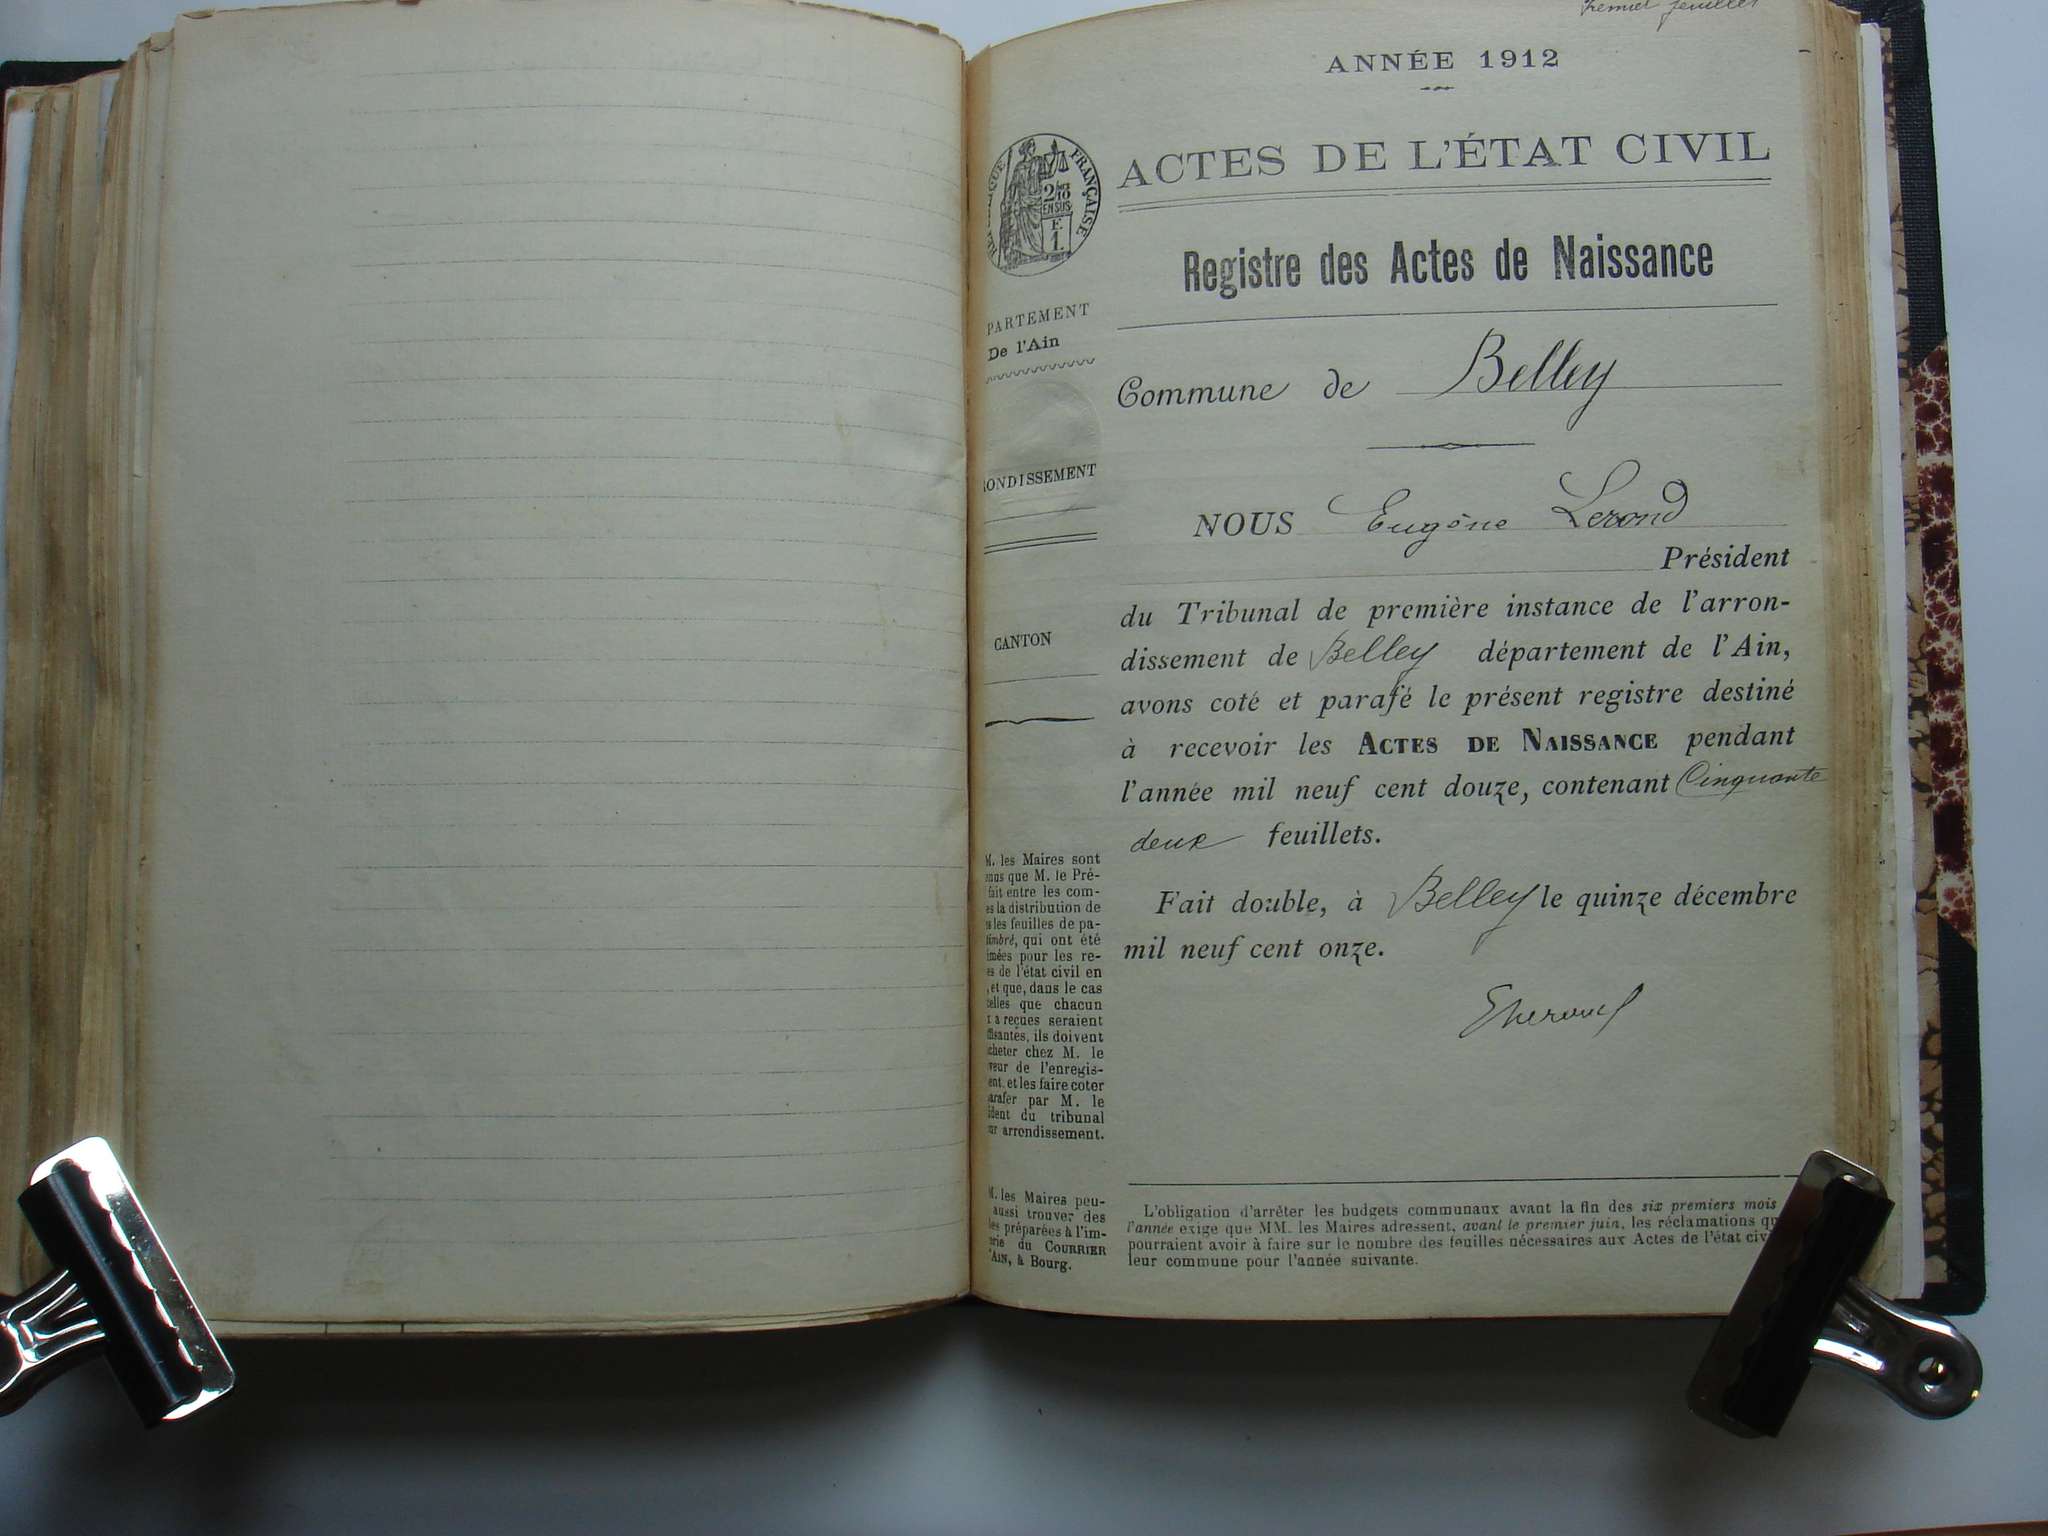 Premier feuillet
ANNÉE 1912
ACTES DE L'ÉTAT CIVIL
FRANÇAISE
2/10
EN SUS
F
1.
Registre des Actes de Naissance
PARTEMENT
De l'Ain
Commune de Belley
ONDISSEMENT
NOUS Eugène Lerond
Président
du Tribunal de première instance de l'arron-
CANTON
dissement de Belley département de l'Ain,
avons coté et parafé le présent registre destiné
à recevoir les ACTES DE NAISSANCE pendant
l'année mil neuf cent douze, contenant Cinquante
deux feuillets.
Fait double, à Belley le quinze décembre
mil neuf cent onze.
M. les Maires sont
nus que M. le Pré-
fait entre les com-
es la distribution de
les feuilles de pa-
timbré, qui ont été
imées pour les re-
es de l'état civil en
, et que, dans le cas
celles que chacun
a reçues seraient
ffisantes, ils doivent
cheter chez M. le
veur de l'enregis-
ent, et les faire coter
arafer par M. le
ident du tribunal
ur arrondissement.
M. les Maires peu-
aussi trouver des
les préparées à l'im-
erie du COURRIER
'AIN, à Bourg.
L'obligation d'arrêter les budgets communaux avant la fin des six premiers mois
l'année exige que MM. les Maires adressent, avant le premier juin, les réclamations qu
pourraient avoir à faire sur le nombre des feuilles nécessaires aux Actes de l'état civ
leur commune pour l'année suivante.